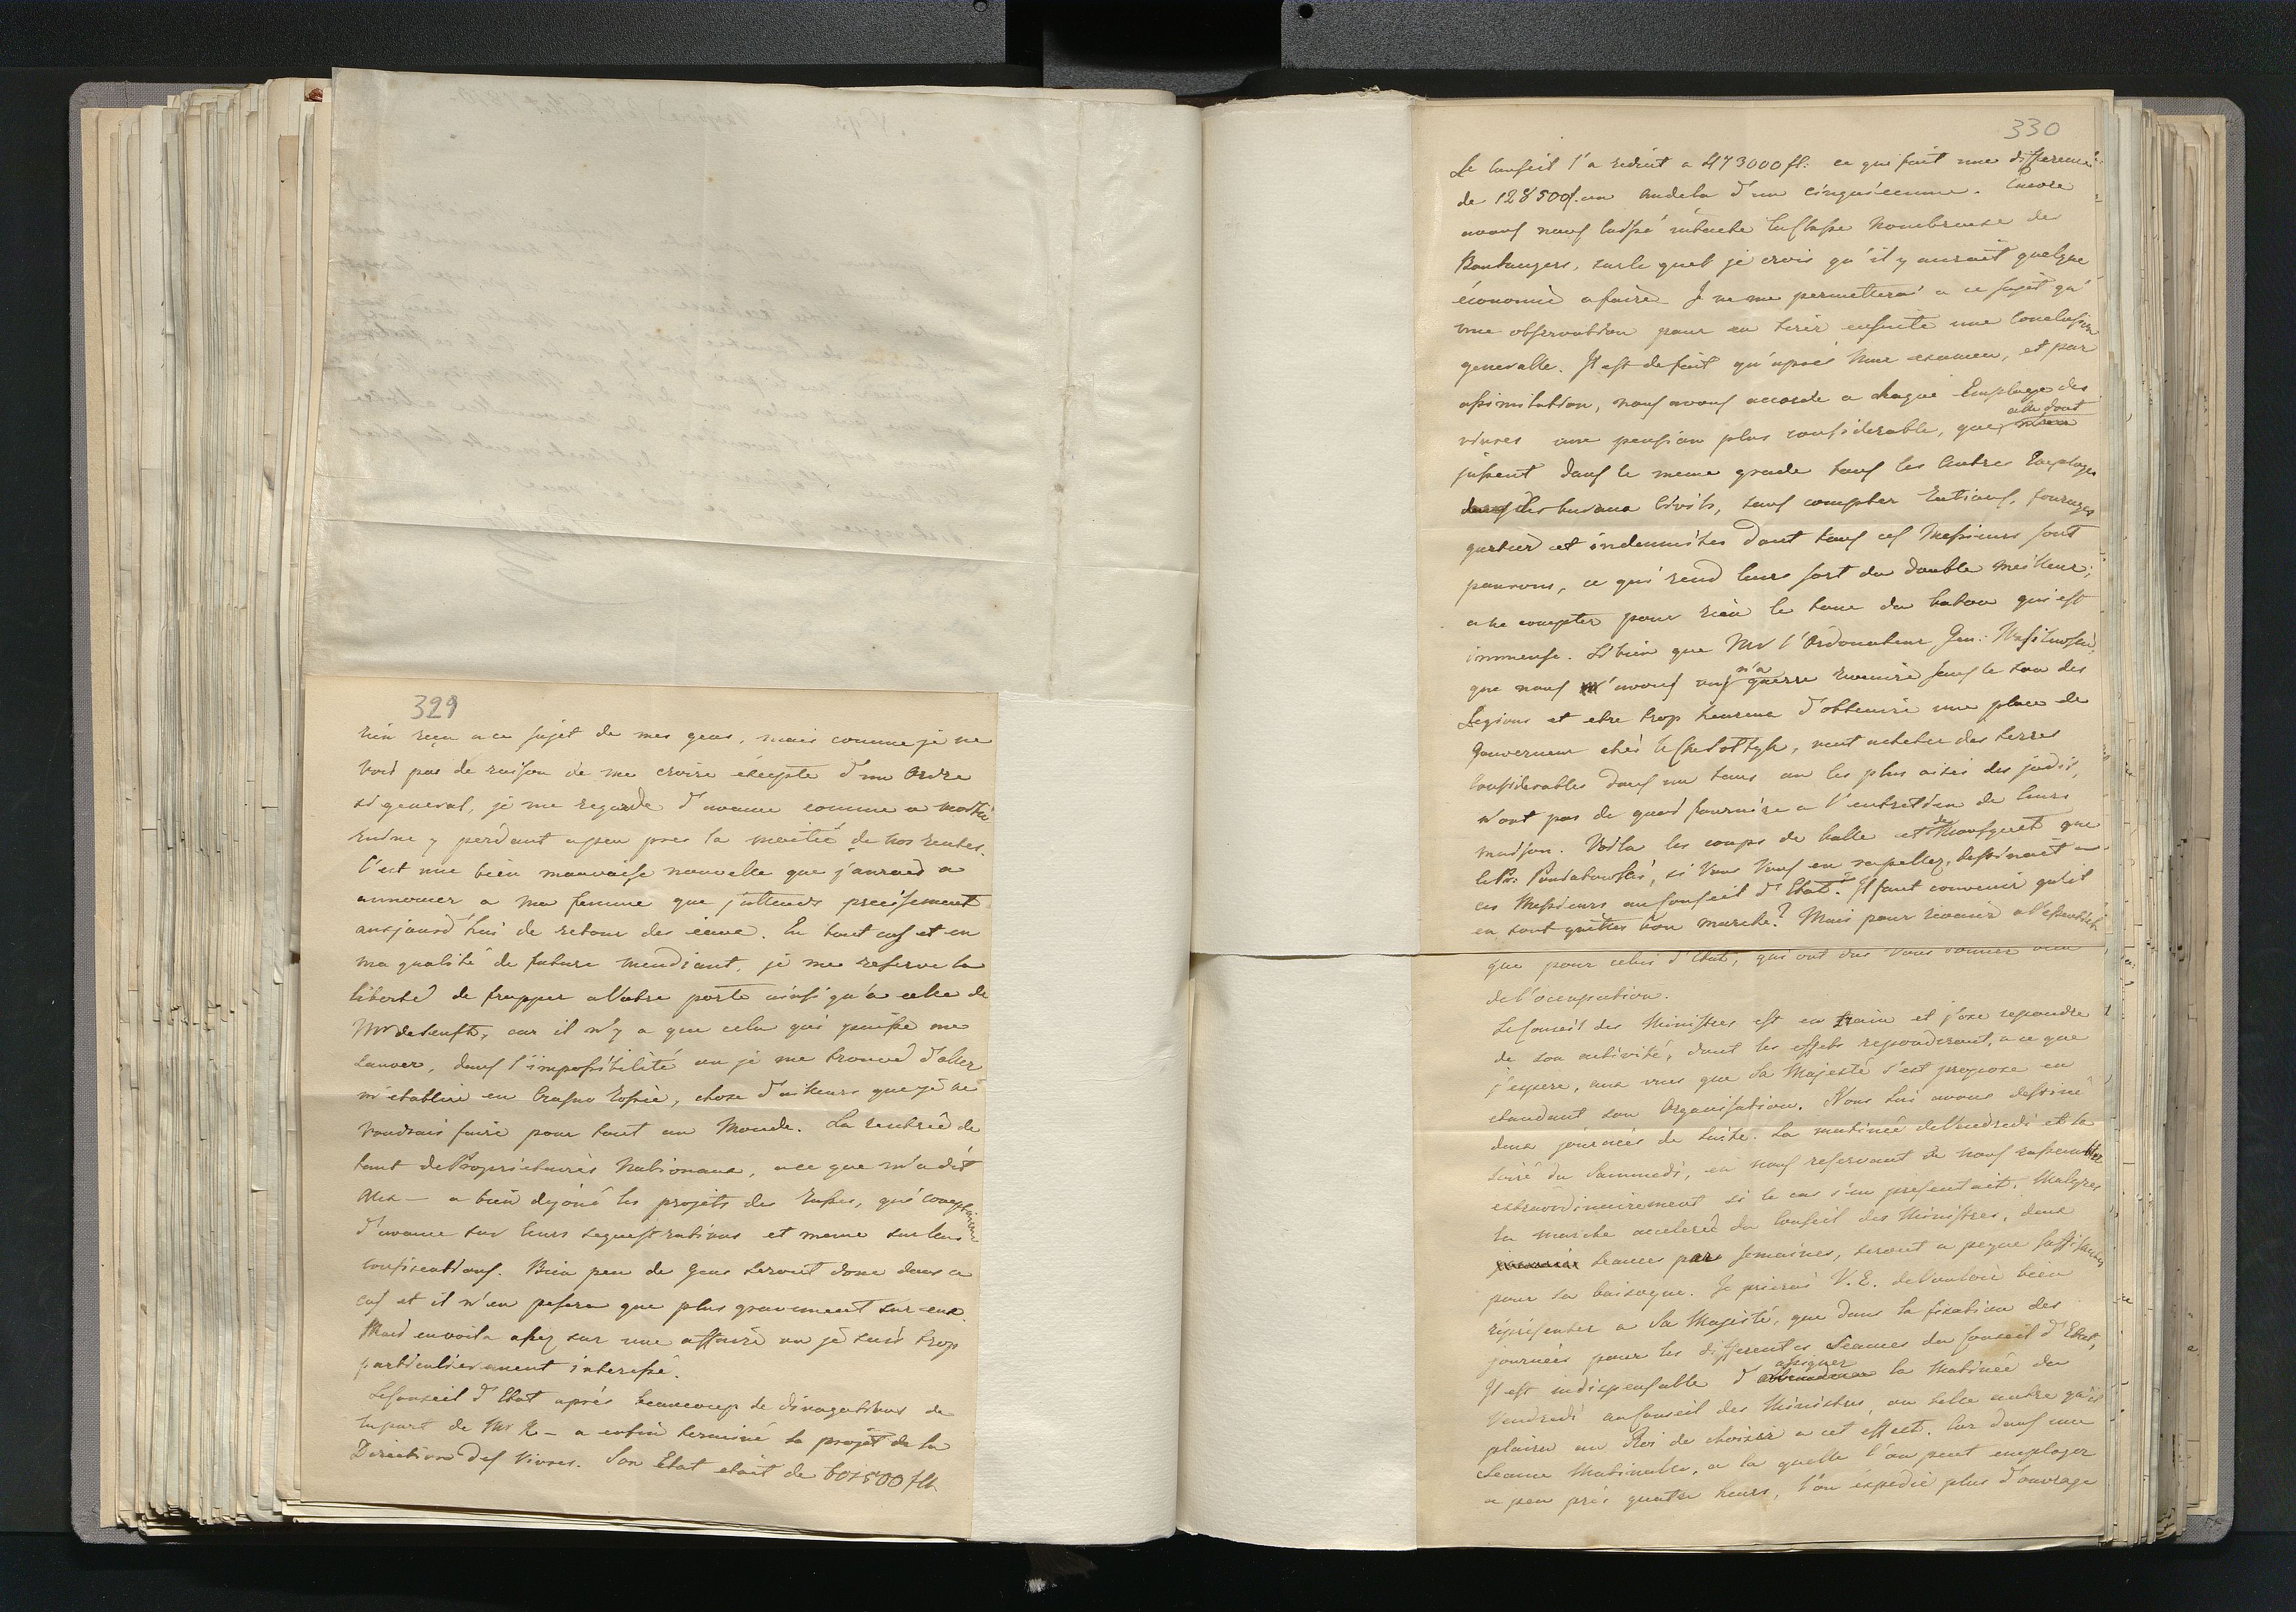 329
rien reçu a ce sujet de mes gens, mais comme je ne
vois pas de raison de me croire excepte d'un Ordre
si general, je me regarde d'avance comme a moitié
ruiné y perdant a peu pres la moitié de nos rentes.
C'est une bien mauvaise nouvelle que j'aurais a
annoncer a ma femme que j'attends precisement
aujourd'hui de retour des eaux. En tout cas et en
ma qualité de future mendiant, je me reserve la
liberté de frapper a Votre porte ainsi qu'a celle de
Mr de Senft, car il n'y a que cela qui puisse me
sauver, dans l'impossibilité ou je me trouve d'aller
m'etablir en Russie, chose d'ailleurs que je ne
voudrais faire pour tout au Monde. La rentrée de
tant de Proprietaires Nationaux, a ce que m'a dit
Alex — a bien dejoué les projets des Russes, qui comptaient
d'avance sur leurs sequestrations et meme sur leurs
confiscations. Bien peu de gens seront donc dans ce
cas et il n'en pesera que plus gravement sur eux.
Mais en voila assez sur une affaire ou je suis trop
particulierement interessé.
Le Conseil d'Etat aprés beaucoup de divagations de
la part de Mr K — a enfin terminé le projet de la
Direction des Vivres. Son Etat etait de 601500 fls
330
Le Conseil l'a reduit a 473000 fl: ce qui fait une difference
de 128500 f. ou audela d'un cinquieme. Encore
avons nous laissé intacte la classe nombreuse de
Boulangers, sur le quel je crois qu'il y aurait quelque
économie a faire. Je ne me permetterai a ce sujet qu'
une observation pour en tirer ensuite une Conclusion
generalle. Il est de fait qu'aprés mure examen, et par
assimilation, nous avons accorde a chaque Employe des
vivres une pension plus considerable, que celle dont
jussent dans le meme grade tous les Autres Employes
des bureaux Civils, sans compter Rations, fourages
quartier et indemnites dont tous ces Messieurs sont
pourvus, ce qui rend leurs sort du double meilleur,
a ne compter pour rien le tour du baton qui est
immense. Si bien que Mr l'Ordonateur Gen:
que nous n'avons vus n'a guerre revenire sans le sou des
Legions et etre trop heureux d'obtenire une place de
Gouverneur chés le, veut acheter des terres
Considerables dans un tems ou les plus aisés des jadis,
n'ont pas de quoi fournire a l'entretien de leurs
maison. Voila les coups de balle et de Mousquet que
le Pr: Poniatowski, si Vous Vous en rapellez, dessinait a
ces Messieurs au Conseil d'Etat. Il faut convenir qu'ils
en sont quittes bon marche? Mais pour revenir a l'essentiel
que pour celui d'Etat, qui ont dus Vous donner
de l'occupation.
Le Conseil des Ministres est en train et j'ose repondre
de son activité, dont les effets reponderont, a ce que
j'espere, aux vues que Sa Majesté s'est propose en
etandant son Organisation. Nous lui avons dessiné
deux journées de suite. La matinée de Vendredi et la
soiré du Sammedi, en nous reservant de nous rassembler
extraordinairement si le cas s'en presentait. Malgres
la marche acceleré du Conseil des Ministres, deux
seances par semaines, seront a peyne suffisantes
pour la baisogne. Je prierai V.E. de Vouloir bien
réprésenter a Sa Majesté, que dans la fixation des
journées pour les differentes Seances du Conseil d'Etat,
Il est indispensable d'assigner la Matinée du
Vendredi au Conseil des Ministres, ou telle autre qu'il
plaira au Roi de choisir a cet effect. Car dans une
Seance Matinalle, a la quelle l'on peut employer
a peu prés quatre heurs, l'on expedie plus d'ouvrage